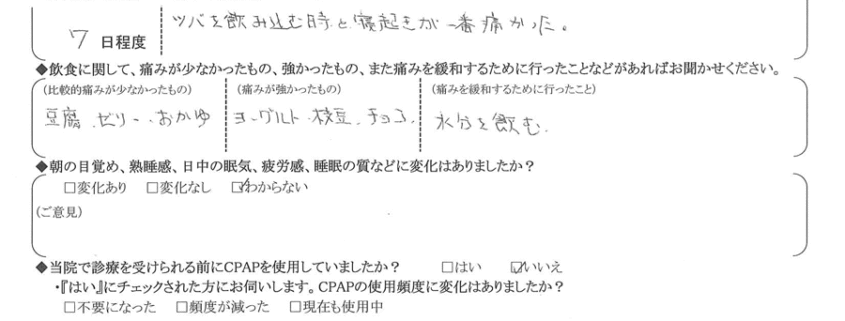 ツバを飲み込む時と寝起きが一番痛かった。
7 日程度
◆飲食に関して、痛みが少なかったもの、強かったもの、また痛みを緩和するために行ったことなどがあればお聞かせください。
(比較的痛みが少なかったもの) (痛みが強かったもの) (痛みを緩和するために行ったこと)
豆腐.ゼリー.おかゆ ヨーグルト.枝豆.チョコ. 水分を飲む.
◆朝の目覚め、熟睡感、日中の眠気、疲労感、睡眠の質などに変化はありましたか？
□変化あり □変化なし ☑わからない
(ご意見)
◆当院で診療を受けられる前にCPAPを使用していましたか？ □はい ☑いいえ
・『はい』にチェックされた方にお伺いします。CPAPの使用頻度に変化はありましたか？
□不要になった □頻度が減った □現在も使用中